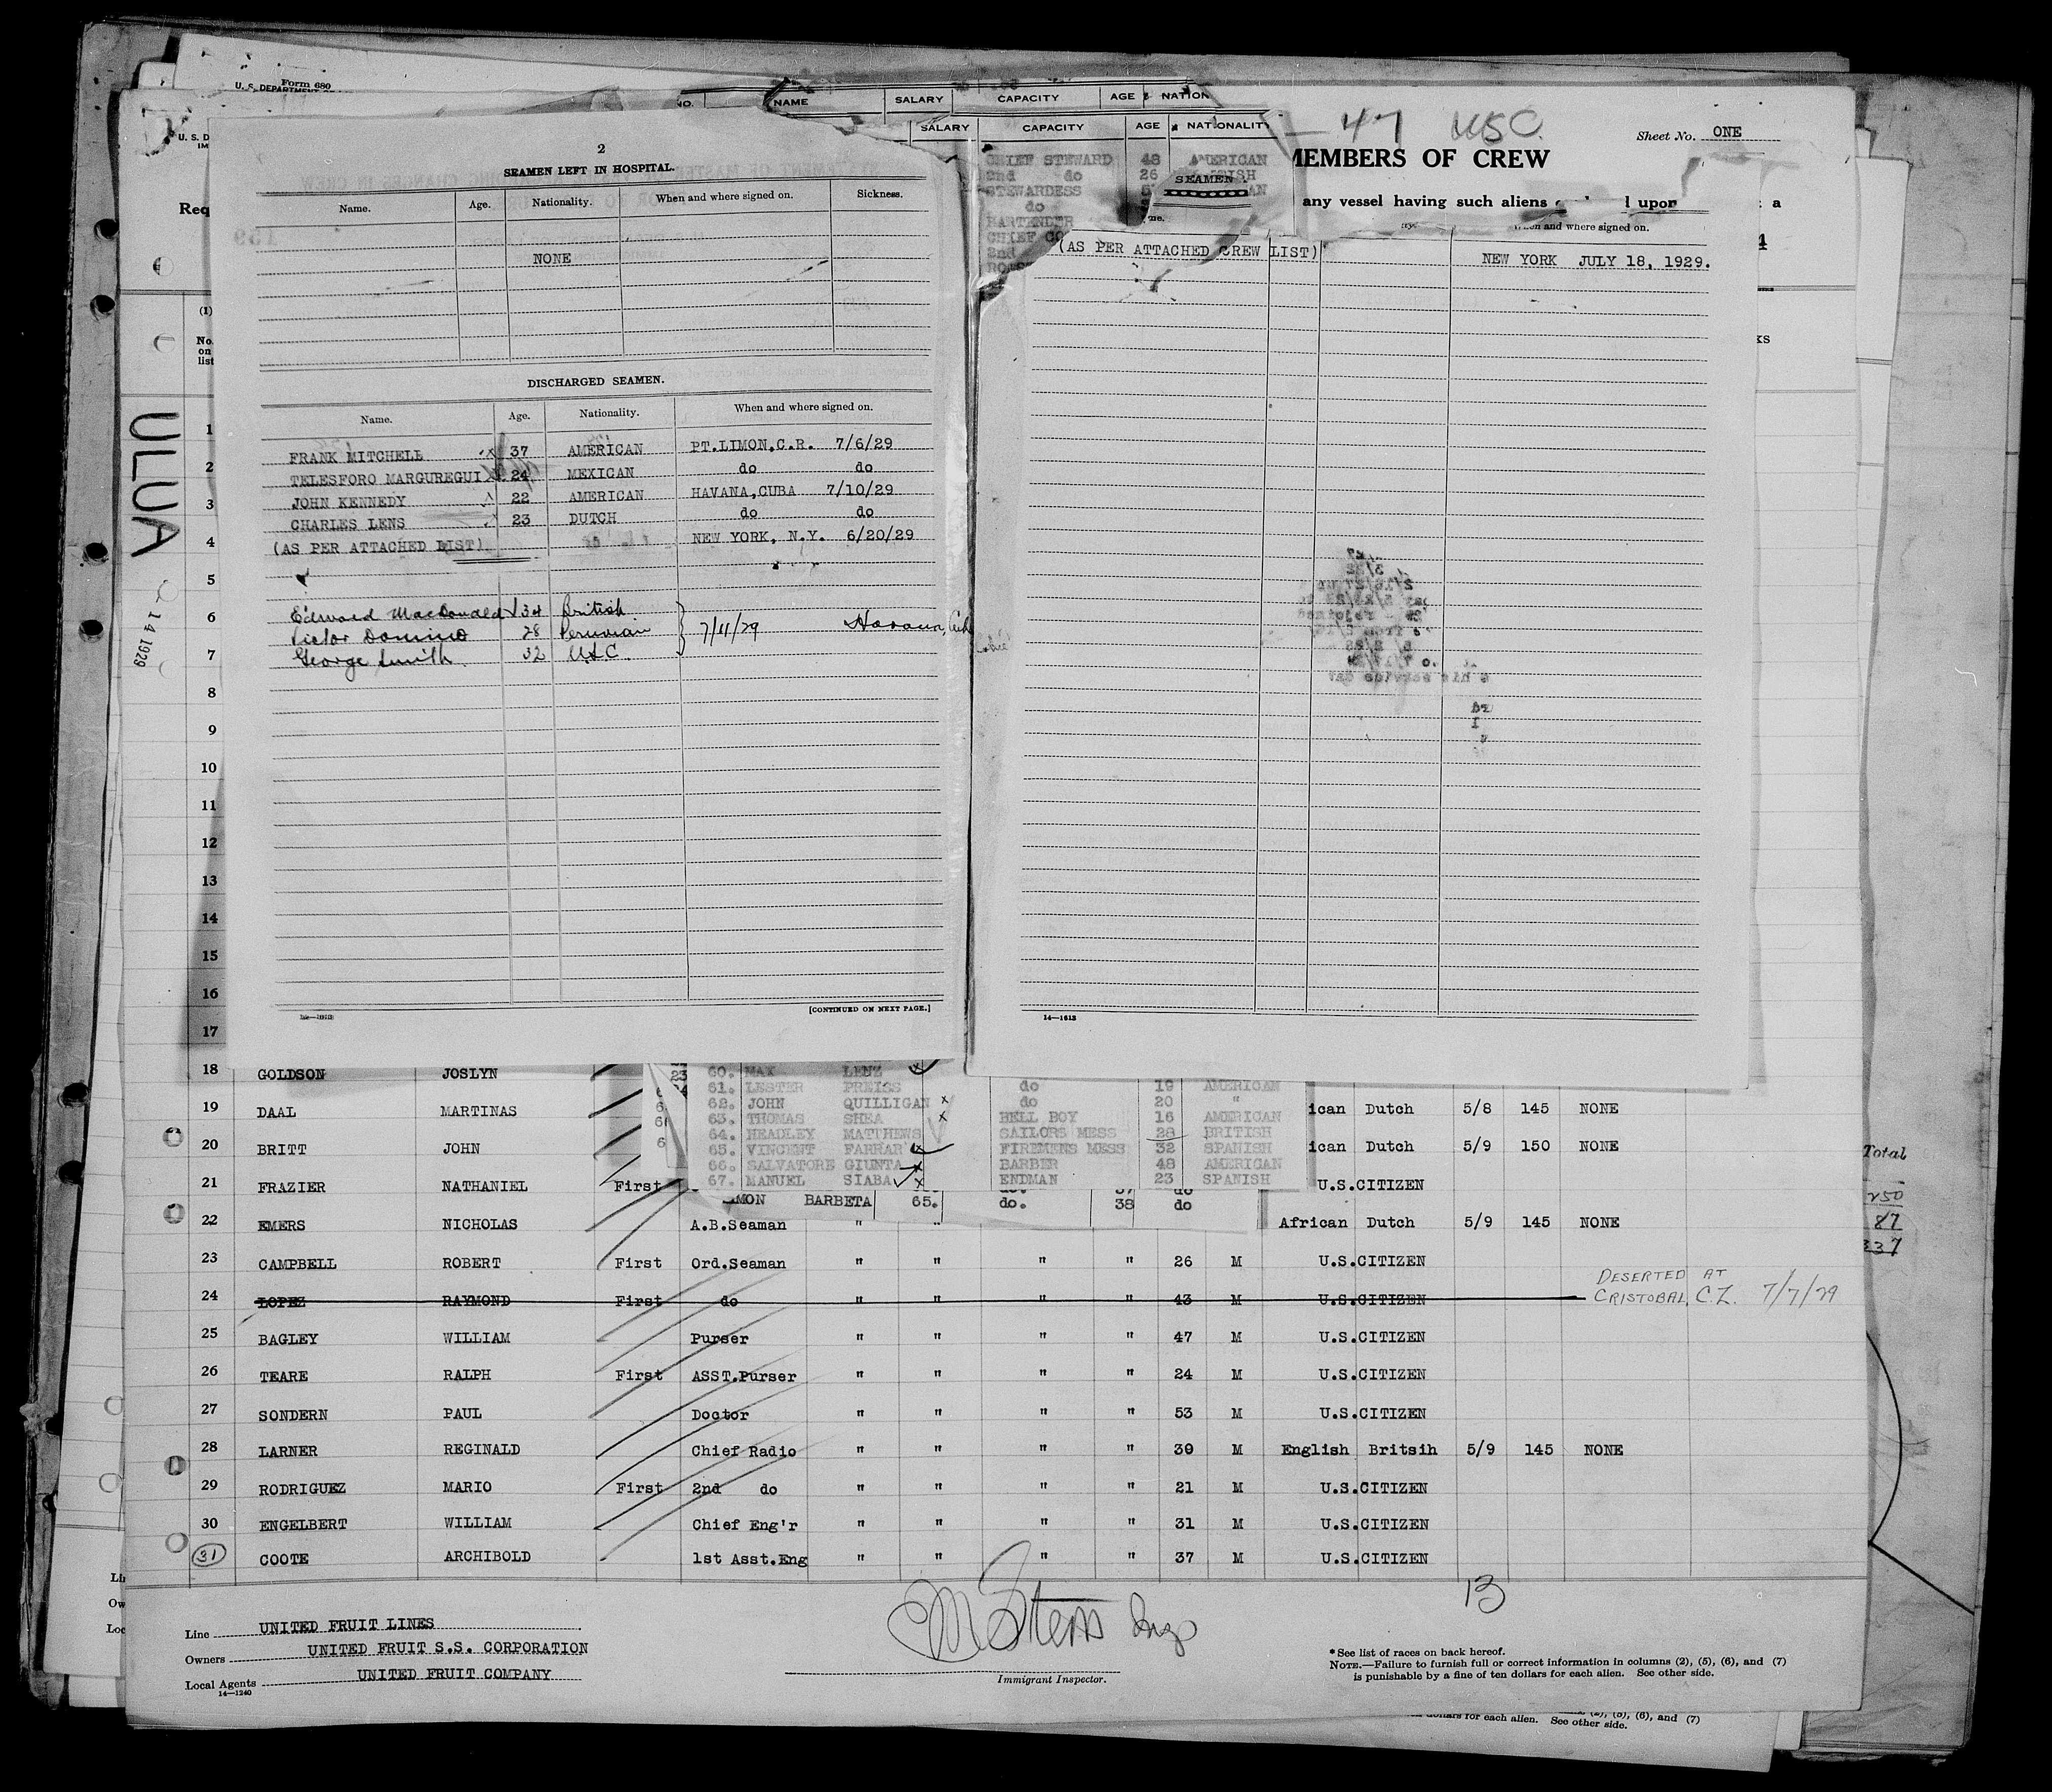 Form 680
U. S. DEPARTMENT
NO. NAME SALARY CAPACITY AGE NATION
SALARY CAPACITY AGE NATIONALITY
47 USC.
Sheet No. ONE
MEMBERS OF CREW
any vessel having such aliens
upon
a
CHIEF STEWARD 48 AMERICAN
2nd do 26
STEWARDESS
do
BARTENDER
SEAMEN
2
SEAMEN LEFT IN HOSPITAL.
Name. Age. Nationality. When and where signed on. Sickness.
NONE
DISCHARGED SEAMEN.
Name. Age. Nationality. When and where signed on.
FRANK MITCHELL 37 AMERICAN PT.LIMON,C.R. 7/6/29
TELESFORO MARGUREGUI 24 MEXICAN do do
JOHN KENNEDY 22 AMERICAN HAVANA,CUBA 7/10/29
CHARLES LENS 23 DUTCH do do
(AS PER ATTACHED LIST) NEW YORK, N.Y. 6/20/29
Edward MacDonald 34 British
Victor Domino 28 Peruvian 7/11/29 Havana,
George Smith 32 USC.
[CONTINUED ON NEXT PAGE.]
and where signed on.
(AS PER ATTACHED CREW LIST) NEW YORK JULY 18, 1929.
14—1613
Req
(1)
No.
on
list
ULUA
14 1929
1
2
3
4
5
6
7
8
9
10
11
12
13
14
15
16
17
60. MAX LENZ
61. LESTER PREISS do 19 AMERICAN
62. JOHN QUILLIGAN do 20 "
63. THOMAS SHEA BELL BOY 16 AMERICAN
64. HEADLEY MATTHEWS SAILORS MESS 28 BRITISH
65. VINCENT FARRAR FIREMENS MESS 32 SPANISH
66. SALVATORE GIUNTA BARBER 48 AMERICAN
67. MANUEL SIABA ENDMAN 23 SPANISH
BARBETA 65. do. 38 do
18 GOLDSON JOSLYN
19 DAAL MARTINAS ican Dutch 5/8 145 NONE
20 BRITT JOHN ican Dutch 5/9 150 NONE
21 FRAZIER NATHANIEL First U.S.CITIZEN
22 EMERS NICHOLAS A.B.Seaman " " African Dutch 5/9 145 NONE
23 CAMPBELL ROBERT First Ord.Seaman " " " " 26 M U.S.CITIZEN
24 LOPEZ RAYMOND First do " " " " 43 M U.S.CITIZEN DESERTED AT
CRISTOBAL, C.Z. 7/7/29
25 BAGLEY WILLIAM Purser " " " " 47 M U.S.CITIZEN
26 TEARE RALPH First ASST.Purser " " " " 24 M U.S.CITIZEN
27 SONDERN PAUL Doctor " " " " 53 M U.S.CITIZEN
28 LARNER REGINALD Chief Radio " " " " 39 M English Britsih 5/9 145 NONE
29 RODRIGUEZ MARIO First 2nd do " " " " 21 M U.S.CITIZEN
30 ENGELBERT WILLIAM Chief Eng'r " " " " 31 M U.S.CITIZEN
31 COOTE ARCHIBOLD 1st Asst.Eng " " " " 37 M U.S.CITIZEN
Total
250
87
337
13
Line UNITED FRUIT LINES
Owners UNITED FRUIT S.S. CORPORATION
Local Agents UNITED FRUIT COMPANY
14—1240
Immigrant Inspector.
*See list of races on back hereof.
NOTE.—Failure to furnish full or correct information in columns (2), (5), (6), and (7)
is punishable by a fine of ten dollars for each alien. See other side.
(2), (5), (6), and (7)
dollars for each alien. See other side.